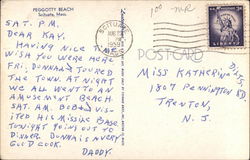 PEGGOTTY BEACH
Scituate, Mass.
SAT. P.M.
DEAR KAY,
HAVING NICE TIME
WISH YOU WERE HERE
FRI. DONNA & I TOURED
THE TOWN. AT NIGHT
WE ALL WENT TO AN
AMUSEMENT BEACH.
SAT. AM. BOB & I VIS-
ITED HIS MISSILE BASE.
TONIGHT GOING OUT TO
DINNER. DONNA IS A VERY
GOOD COOK.
DADDY.
SCITUATE
1959
MASS.
POSTCARD
MISS KATHERINE
1807 PENNINGTON
TRENTON,
N. J.
LIBERTY